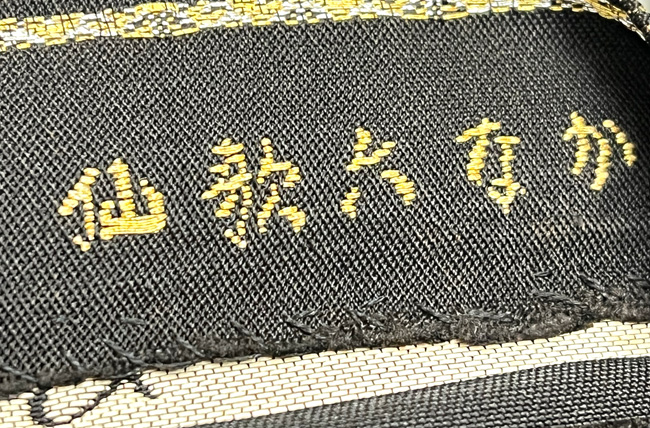 かな六歌仙